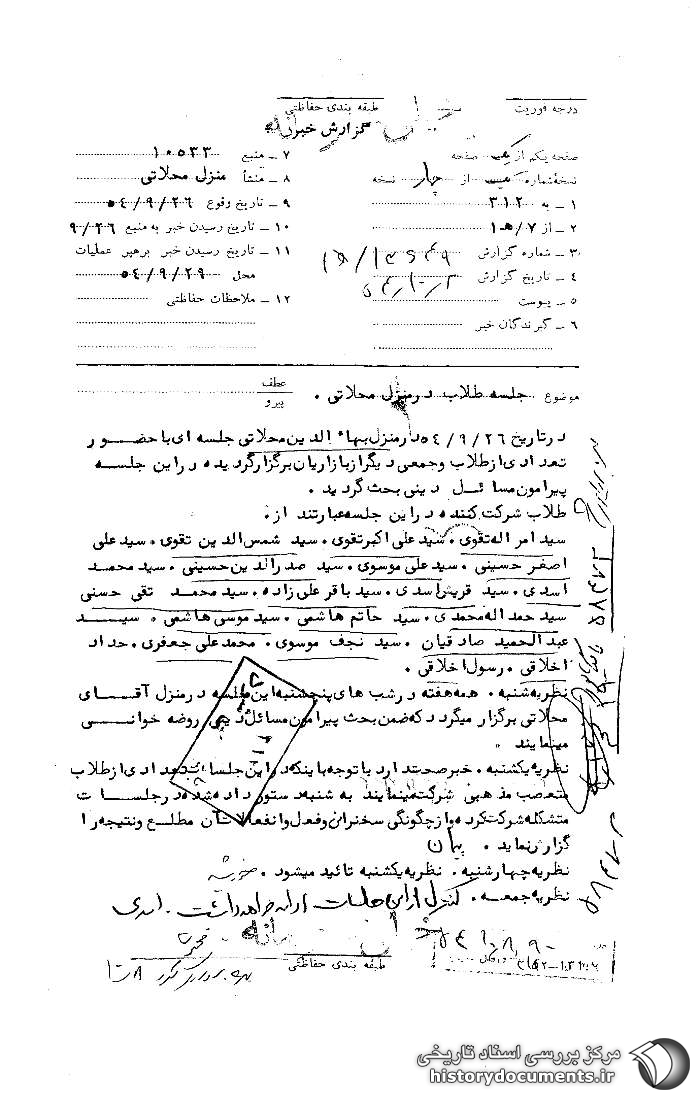 درجه فوریت
طبقه بندی حفاظتی
گزارش خبر
صفحه یکم از یک صفحه
نسخه شماره از چهار نسخه
۱ ـ به ۳۱۲
۲ ـ از ۷/هـ۱
۳ ـ شماره گزارش
۴ ـ تاریخ گزارش
۵ ـ پیوست
۶ ـ گیرندگان خبر
۷ ـ منبع ۱۰۵۳۳
۸ ـ منشأ منزل محلاتی
۹ ـ تاریخ وقوع ۵۴/۹/۲۶
۱۰ ـ تاریخ رسیدن خبر به منبع ۹/۲۶
۱۱ ـ تاریخ رسیدن خبر برهبر عملیات
محل ۵۴/۹/۲۹
۱۲ ـ ملاحظات حفاظتی
موضوع جلسه طلاب درمنزل محلاتی .
عطف
پیرو
درتاریخ ۵۴/۹/۲۶ درمنزل بهاء الدین محلاتی جلسه ای با حضور
تعدادی از طلاب و جمعی دیگر از بازاریان برگزار گردیده و در این جلسه
پیرامون مسائل دینی بحث گردید .
طلاب شرکت کننده در این جلسه عبارتند از .
سید امراله تقوی . سید علی اکبر تقوی . سید شمس الدین تقوی . سید علی
اصغر حسینی . سید علی موسوی . سید صدرالدین حسینی . سید محمد
اسدی . سید قریش اسدی . سید باقر علی زاده . سید محمد تقی حسنی
سید حمداله محمدی . سید حاتم هاشمی . سید موسی هاشمی . سید
عبدالحمید صادقیان . سید نجف موسوی . محمد علی جعفری . حداد
اخلاقی . رسول اخلاقی .
نظریه شنبه . همه هفته در شب های پنجشنبه این جلسه در منزل آقای
محلاتی برگزار میگردد که ضمن بحث پیرامون مسائل دینی روضه خوانی
مینمایند .
نظریه یکشنبه . خبر صحت دارد با توجه باینکه در این جلسات تعدادی از طلاب
متعصب مذهبی شرکت مینمایند به شنبه دستور داده شده در جلسات
متشکله شرکت کرده و از چگونگی سخنرانی و فعل و انفعالات آن مطلع و نتیجه را
گزارش نماید . پیمان
نظریه چهارشنبه . نظریه یکشنبه تائید میشود .
نظریه جمعه . کنترل از این جلسات ادامه خواهد داشت .
طبقه بندی حفاظتی
مرکز بررسی اسناد تاریخی
historydocuments.ir